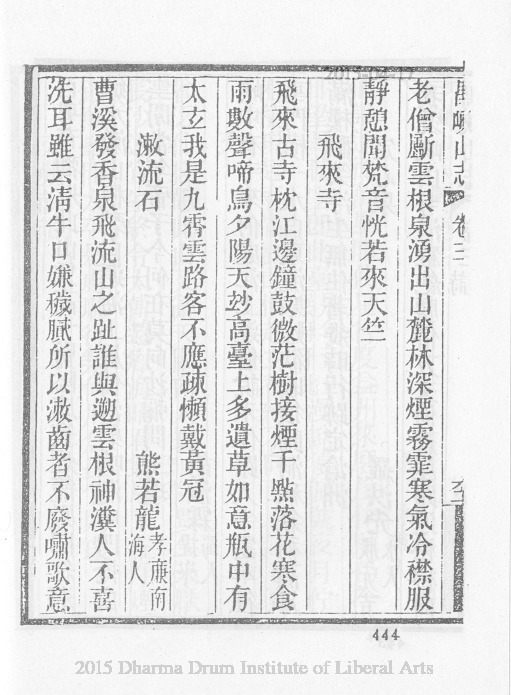 老僧斸雲根泉湧出山麓林深煙霧霏寒氣冷襟服
靜憩聞梵音恍若來天竺
飛來寺
飛來古寺枕江邊鐘鼓微茫樹接煙千㸃落花寒食
雨數聲啼鳥夕陽天玅高臺上多遺草如意瓶中有
太玄我是九霄雲路客不應疎懶戴黃冠
漱流石 熊若龍孝廉南海人
曹溪發香泉飛流山之趾誰與遡雲根神瀵人不喜
洗耳雖云清牛口嫌穢膩所以漱齒者不廢嘯歌意
444
2015 Dharma Drum Institute of Liberal Arts